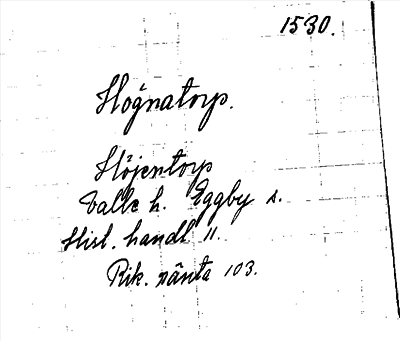 1530.
Högnatorp.
Höjentorp
Valle h. Eggby s.
Hisl. handl 11.
Rik. ränta 103.